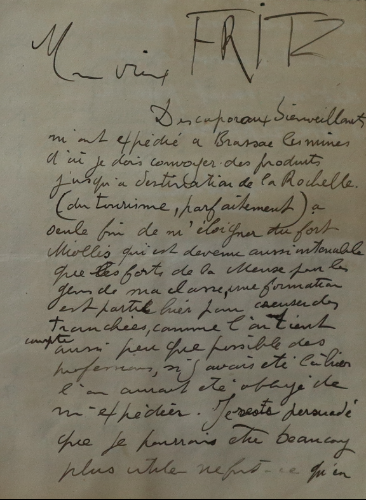 Mon vieux FRITZ
Des caporaux bienveillants
m'ont expédié à Brassac les mines
d'où je dois convoyer des produits
jusqu'à destination de la Rochelle.
(du tourisme, parfaitement) à
seule fin de m'éloigner du fort
Miollis qui est devenu aussi intenable
que les forts de la Meuse par les
gens de ma classe, une formation
est partie hier pour creuser des
tranchées, comme l'on tient
compte
aussi peu que possible des
professions, si j'avais été là hier
l'on aurait été obligé de
m'expédier. Je reste persuadé
que je pourrais être beaucoup
plus utile ne fut-ce qu'en